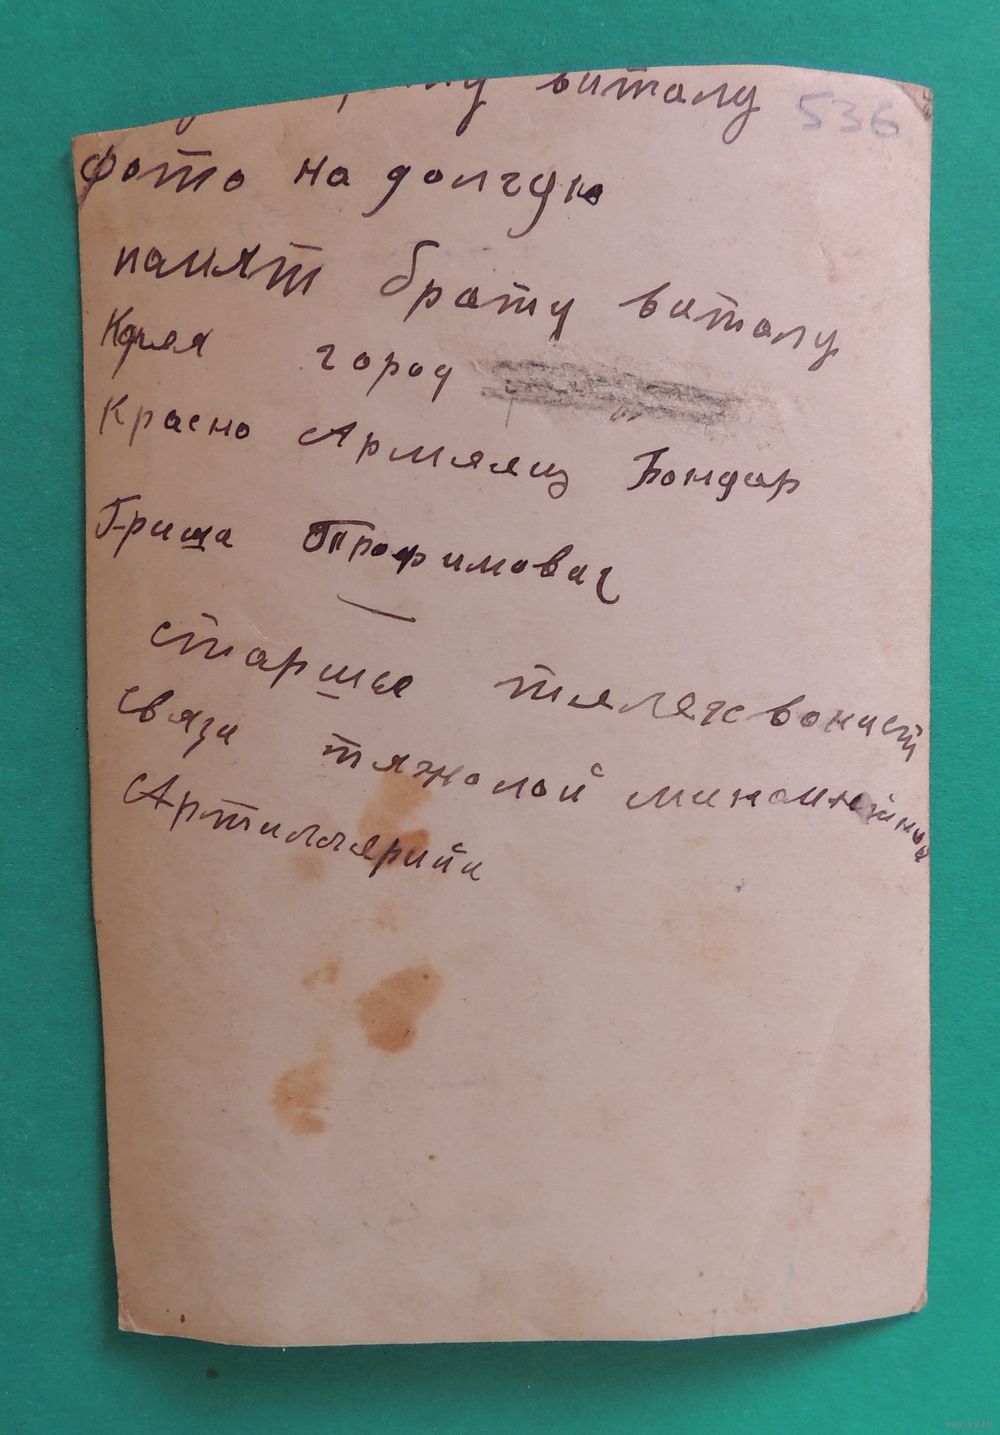 виталу 536
фото на долгую
памят брату виталу
город
Красно Армяяц Бондар
Гриша Трофимович
старшыя тялехвонист
связи тяжолой миномётной
Артиллярийи